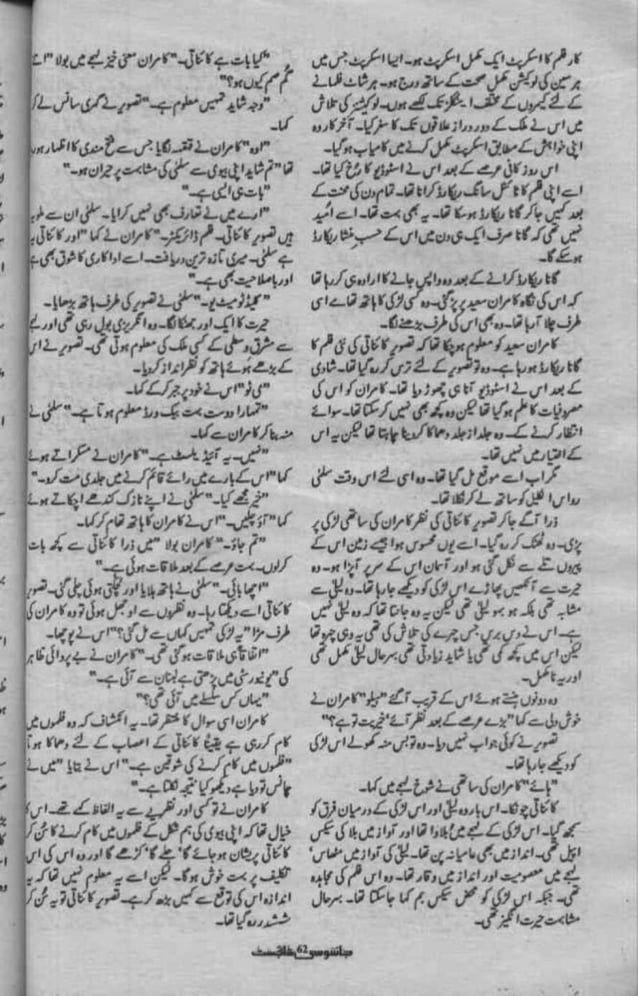 کار فلم کا اسکرپٹ ایک مکمل اسکرپٹ ہو۔ ایسا اسکرپٹ جس میں
ہر سین کی لوکیشن مکمل صحت کے ساتھ درج ہو۔ ہر شاٹ فلمانے
کے لئے کیمروں کے مختلف اینگلز تک لکھے ہوں۔ لوکیشنز کی تلاش
میں اس نے ملک کے دور دراز علاقوں تک کا سفر کیا۔ آخر کار وہ
اپنی خواہش کے مطابق اسکرپٹ مکمل کرنے میں کامیاب ہو گیا۔
اس روز کافی عرصے کے بعد اس نے اسٹوڈیو کا رخ کیا تھا۔
اسے اپنی فلم کا ٹائٹل سانگ ریکارڈ کرانا تھا۔ تمام دن کی محنت کے
بعد کہیں جا کر گانا ریکارڈ ہو سکا تھا۔ یہ بھی بہت تھا۔ اسے امید
نہیں تھی کہ گانا صرف ایک ہی دن میں اس کے حسب منشا ریکارڈ
ہو سکے گا۔
گانا ریکارڈ کرانے کے بعد وہ واپس جانے کا ارادہ ہی کر رہا تھا
کہ اس کی نگاہ کامران سعید پر پڑ گئی۔ وہ کسی لڑکی کا ہاتھ تھامے اسی
طرف چلا آ رہا تھا۔ وہ بھی اس کی طرف بڑھنے لگا۔
کامران سعید کو معلوم ہو چکا تھا کہ تصویر کائناتی کی نئی فلم کا
گانا ریکارڈ ہو رہا ہے۔ وہ تو تصویر کے لئے ترس کر رہ گیا تھا۔ شادی
کے بعد اس نے اسٹوڈیو آنا ہی چھوڑ دیا تھا۔ کامران کو اس کی
مصروفیات کا علم ہو گیا تھا لیکن وہ کچھ بھی نہیں کر سکتا تھا۔ سوائے
انتظار کرنے کے۔ وہ جلد از جلد دھماکا کر دینا چاہتا تھا لیکن یہ اس
کے اختیار میں نہیں تھا۔
مگر اب اسے موقع مل گیا تھا۔ وہ اسی لئے اس وقت سلمٰی
رواس الجلیل کو ساتھ لے کر نکلا تھا۔
ذرا آگے جا کر تصویر کائناتی کی نظر کامران کی ساتھی لڑکی پر
پڑی۔ وہ ٹھٹک کر رہ گیا۔ اسے یوں محسوس ہوا جیسے زمین اس کے
پیروں تلے سے نکل گئی ہو اور آسمان اس کے سر پر آ پڑا ہو۔ وہ
حیرت سے آنکھیں پھاڑے اس لڑکی کو دیکھے جا رہا تھا۔ وہ لیلٰی سے
مشابہ تھی بلکہ ہو بہو لیلٰی تھی لیکن یہ وہ جانتا تھا کہ وہ لیلٰی نہیں
ہے۔ اس نے دس برس جس چہرے کی تلاش کی تھی یہ وہی چہرہ تھا
لیکن اس میں کچھ کمی تھی یا شاید زیادتی تھی بہرحال لیلٰی مکمل تھی
اور یہ نامکمل۔
وہ دونوں ہنستے ہوئے اس کے قریب آ گئے "ہیلو" کامران نے
خوش دلی سے کہا "بڑے عرصے کے بعد نظر آئے' خیریت تو ہے؟"
تصویر نے کوئی جواب نہیں دیا۔ وہ تو بس منہ کھولے اس لڑکی
کو دیکھے جا رہا تھا۔
"ہائے" کامران کی ساتھی نے شوخ لہجے میں کہا۔
کائناتی چونکا۔ اس بار وہ لیلٰی اور اس لڑکی کے درمیان فرق کو
سمجھ گیا۔ اس لڑکی کے لہجے میں بلاوا تھا اور آواز میں بلا کی سیکس
اپیل تھی۔ انداز میں بھی عامیانہ پن تھا۔ لیلٰی کی آواز میں مٹھاس'
لہجے میں معصومیت اور انداز میں وقار تھا۔ وہ اس فلم کی مجاہدہ
تھی۔ جبکہ اس لڑکی کو محض سیکس بم کہا جا سکتا تھا۔ بہرحال
مشابہت حیرت انگیز تھی۔
"کیا بات ہے کائناتی۔" کامران معنی خیز لہجے میں بولا "اتنے
گم صم کیوں ہو؟"
"وجہ شاید تمہیں معلوم ہے۔" تصویر نے گہری سانس لے کر
کہا۔
"اوہ" کامران نے قہقہہ لگایا جس سے فتح مندی کا اظہار ہو رہا
تھا "تم شاید اپنی بیوی سے سلمٰی کی مشابہت پر حیران ہو۔"
"بات ہی ایسی ہے۔"
"ارے میں نے تعارف بھی نہیں کرایا۔ سلمٰی ان سے ملو یہ
ہیں تصویر کائناتی۔ فلم ڈائریکٹر۔" کامران نے کہا "اور کائناتی یہ
ہے سلمٰی۔ میری تازہ ترین دریافت۔ اسے اداکاری کا شوق بھی ہے
اور باصلاحیت بھی ہے۔"
"گلیڈ ٹو میٹ یو۔" سلمٰی نے تصویر کی طرف ہاتھ بڑھایا۔
حیرت کا ایک اور جھٹکا لگا۔ وہ انگریزی بول رہی تھی اور لہجے
سے مشرق وسطٰی کے کسی ملک کی معلوم ہوتی تھی۔ تصویر نے اس
کے بڑھے ہوئے ہاتھ کو نظر انداز کر دیا۔
"می ٹو" اس نے خود پر جبر کر کے کہا۔
"تمہارا دوست بہت بیک ورڈ معلوم ہوتا ہے۔" سلمٰی نے
منہ بنا کر کامران سے کہا۔
"نہیں۔ یہ آئیڈیلسٹ ہے۔" کامران نے مسکراتے ہوئے
کہا "اس کے بارے میں رائے قائم کرنے میں جلدی مت کرو۔"
"خیر مجھے کیا۔" سلمٰی نے اپنے نازک کندھے اچکاتے ہوئے
کہا "آؤ چلیں۔" اس نے کامران کا ہاتھ تھام کر کہا۔
"تم جاؤ۔" کامران بولا "میں ذرا کائناتی سے کچھ بات
کر لوں۔ بہت عرصے کے بعد ملاقات ہوئی ہے۔"
"اچھا بائی۔" سلمٰی نے ہاتھ ہلایا اور لچکتی ہوئی چلی گئی۔ تصویر
کائناتی اسے دیکھتا رہا۔ وہ نظروں سے اوجھل ہوئی تو وہ کامران کی
طرف مڑا "یہ لڑکی تمہیں کہاں سے مل گئی؟" اس نے پوچھا۔
"اتفاقاً ہی ملاقات ہو گئی تھی۔" کامران نے بے پروائی ظاہر
کی "یونیورسٹی میں پڑھتی ہے لبنان سے آئی ہے۔"
"یہاں کس سلسلے میں آئی تھی؟"
کامران اسی سوال کا منتظر تھا۔ یہ انکشاف کہ وہ فلموں میں
کام کر رہی ہے یقیناً کائناتی کے اعصاب کے لئے دھماکا ہوتا
"فلموں میں کام کرنے کی شوقین ہے۔" اس نے بتایا "میں نے
چانس تو دیا ہے دیکھو کیا نتیجہ نکلتا ہے۔"
کامران نے تو کسی اور نظریے سے یہ الفاظ کہے تھے۔ اس کا
خیال تھا کہ اپنی بیوی کی ہم شکل کے فلموں میں کام کرنے کا سن کر
کائناتی پریشان ہو جائے گا' جلے گا' کڑھے گا اور وہ اس کی اس
تکلیف پر بہت خوش ہو گا۔ لیکن اسے یہ معلوم نہیں تھا کہ یہ
اندازہ اس کی توقع سے کہیں بڑھ کر ہے۔ تصویر کائناتی تو یہ سن کر
ششدر رہ گیا تھا۔
جاسوسی 62 ڈائجسٹ